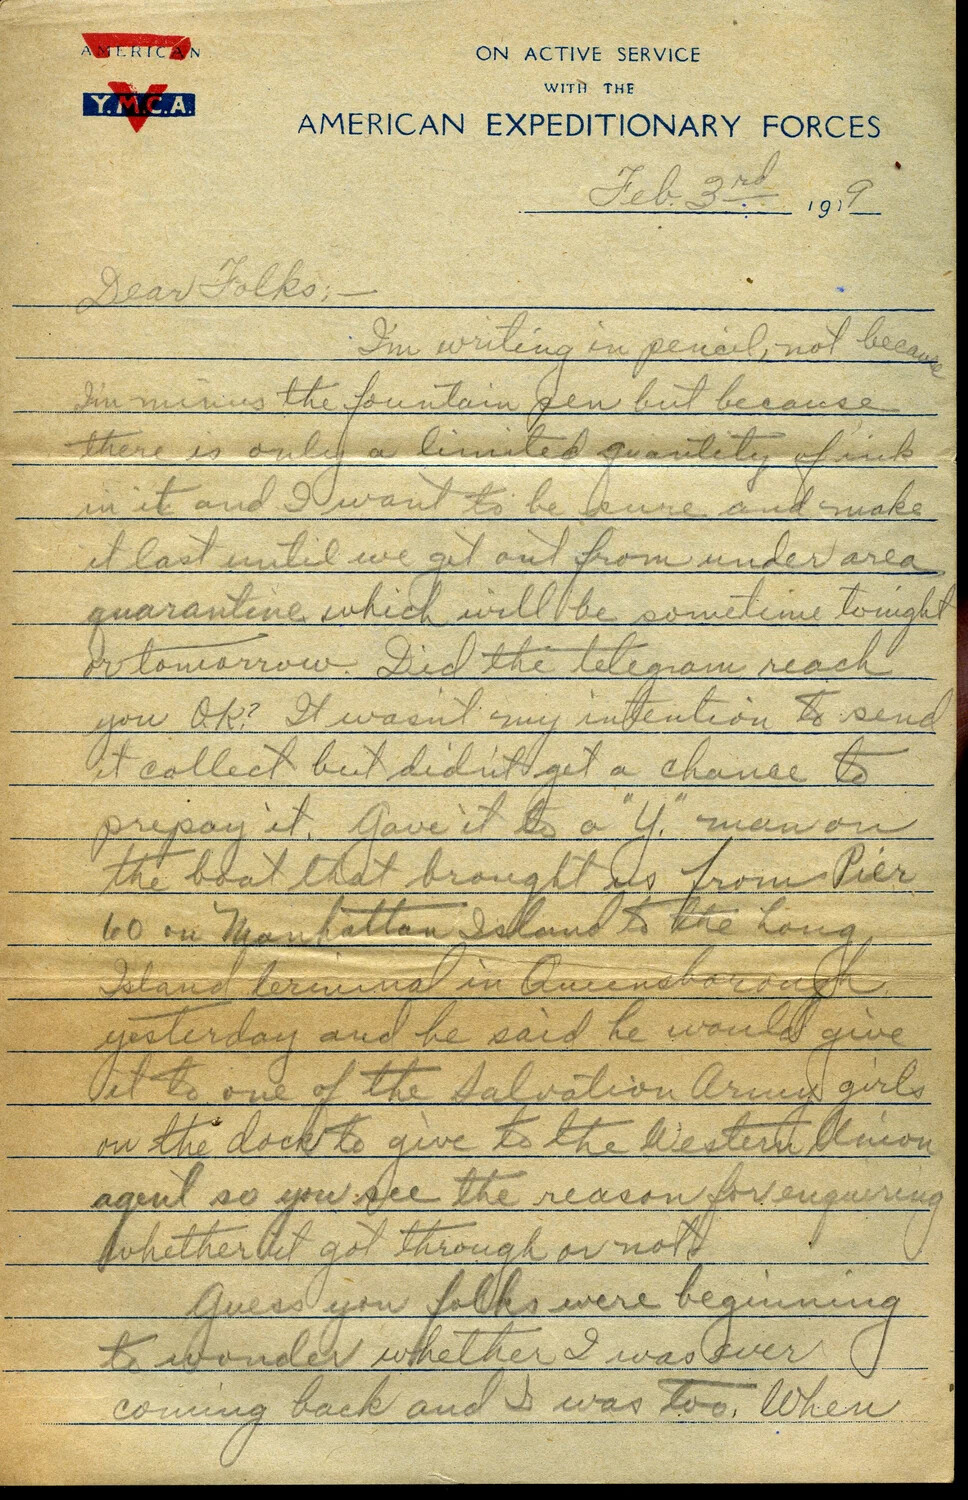 AMERICAN
Y.M.C.A.
ON ACTIVE SERVICE
WITH THE
AMERICAN EXPEDITIONARY FORCES
Feb. 3rd 1919
Dear Folks:—
I'm writing in pencil, not because
I'm minus the fountain pen but because
there is only a limited quantity of ink
in it and I want to be sure and make
it last until we get out from under area
quarantine which will be sometime tonight
or tomorrow. Did the telegram reach
you O.K.? It wasn't my intention to send
it collect but didn't get a chance to
prepay it. Gave it to a "Y." man on
the boat that brought us from Pier
60 on Manhattan Island to the Long
Island terminal in Queensborough
yesterday and he said he would give
it to one of the Salvation Army girls
on the dock to give to the Western Union
agent so you see the reason for enquiring
whether it got through or not.
Guess you folks were beginning
to wonder whether I was ever
coming back and I was too. When